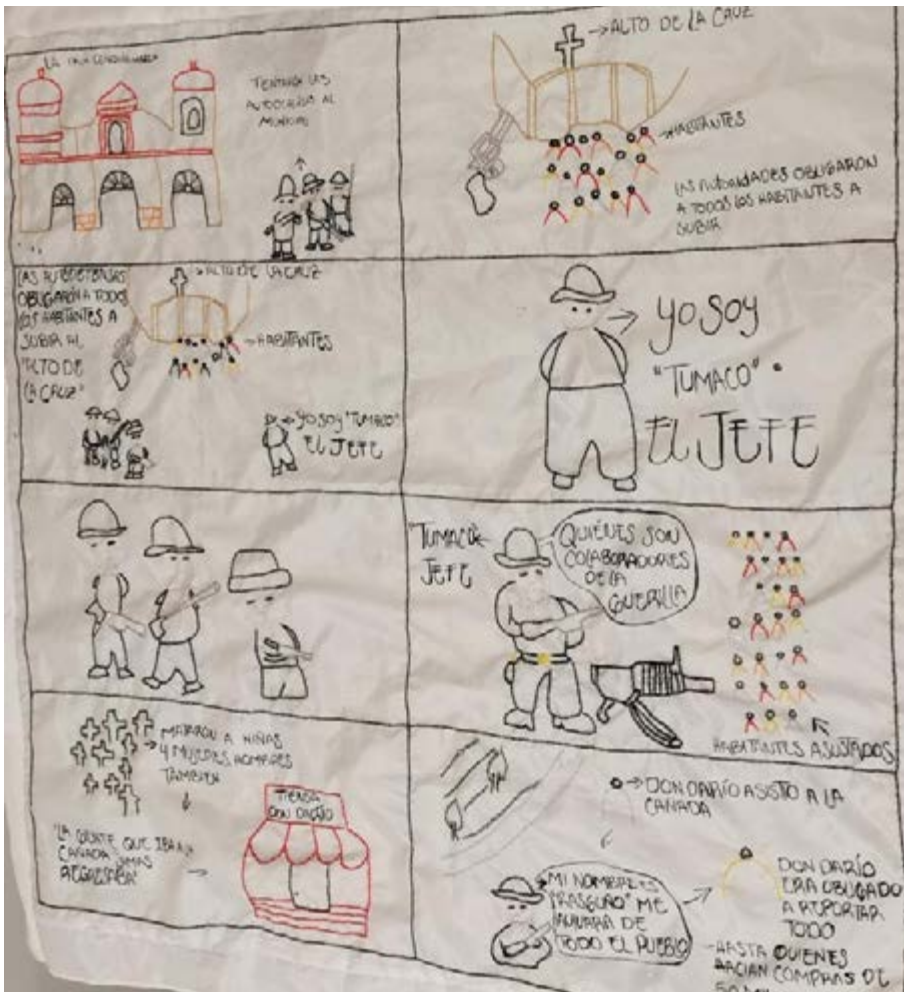 LA
TENTARON LAS
AL
→ALTO DE LA CRUZ
→HABITANTES
LAS AUTORIDADES OBLIGARON
A TODOS LOS HABITANTES A
SUBIR
LAS AUTODEFENSAS
OBLIGARON A TODOS
LOS HABITANTES A
SUBIR AL
"ALTO DE
LA CRUZ"
→ALTO DE LA CRUZ
→HABITANTES
→YO SOY "TUMACO"
EL JEFE
YO SOY
"TUMACO"
EL JEFE
"TUMACO"
JEFE
QUIÉNES SON
COLABORADORES
DE LA
GUERILLA
HABITANTES ASUSTADOS
MATARON A NIÑAS
Y MUJERES, HOMBRES
TAMBIEN
LA GENTE QUE IBA A
CAÑADA JAMAS
REGRESABA
TIENDA
DON DARÍO
→DON DARÍO ASISTIO A LA
CAÑADA
MI NOMBRE ES
"RASGUÑO" ME
DE
TODO EL PUEBLO
DON DARÍO
ERA OBLIGADO
A REPORTAR
TODO
-HASTA QUIENES
HACIAN COMPRAS DE